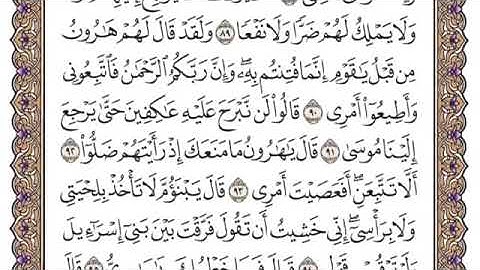 وَلَا يَمْلِكُ لَهُمْ ضَرًّا وَلَا نَفْعًا ۝٨٩ وَلَقَدْ قَالَ لَهُمْ هَٰرُونُ
مِن قَبْلُ يَٰقَوْمِ إِنَّمَا فُتِنتُم بِهِۦ وَإِنَّ رَبَّكُمُ ٱلرَّحْمَٰنُ فَٱتَّبِعُونِى
وَأَطِيعُوٓا۟ أَمْرِى ۝٩٠ قَالُوا۟ لَن نَّبْرَحَ عَلَيْهِ عَٰكِفِينَ حَتَّىٰ يَرْجِعَ
إِلَيْنَا مُوسَىٰ ۝٩١ قَالَ يَٰهَٰرُونُ مَا مَنَعَكَ إِذْ رَأَيْتَهُمْ ضَلُّوٓا۟ ۝٩٢
أَلَّا تَتَّبِعَنِ أَفَعَصَيْتَ أَمْرِى ۝٩٣ قَالَ يَبْنَؤُمَّ لَا تَأْخُذْ بِلِحْيَتِى
وَلَا بِرَأْسِىٓ إِنِّى خَشِيتُ أَن تَقُولَ فَرَّقْتَ بَيْنَ بَنِىٓ إِسْرَٰٓءِيلَ